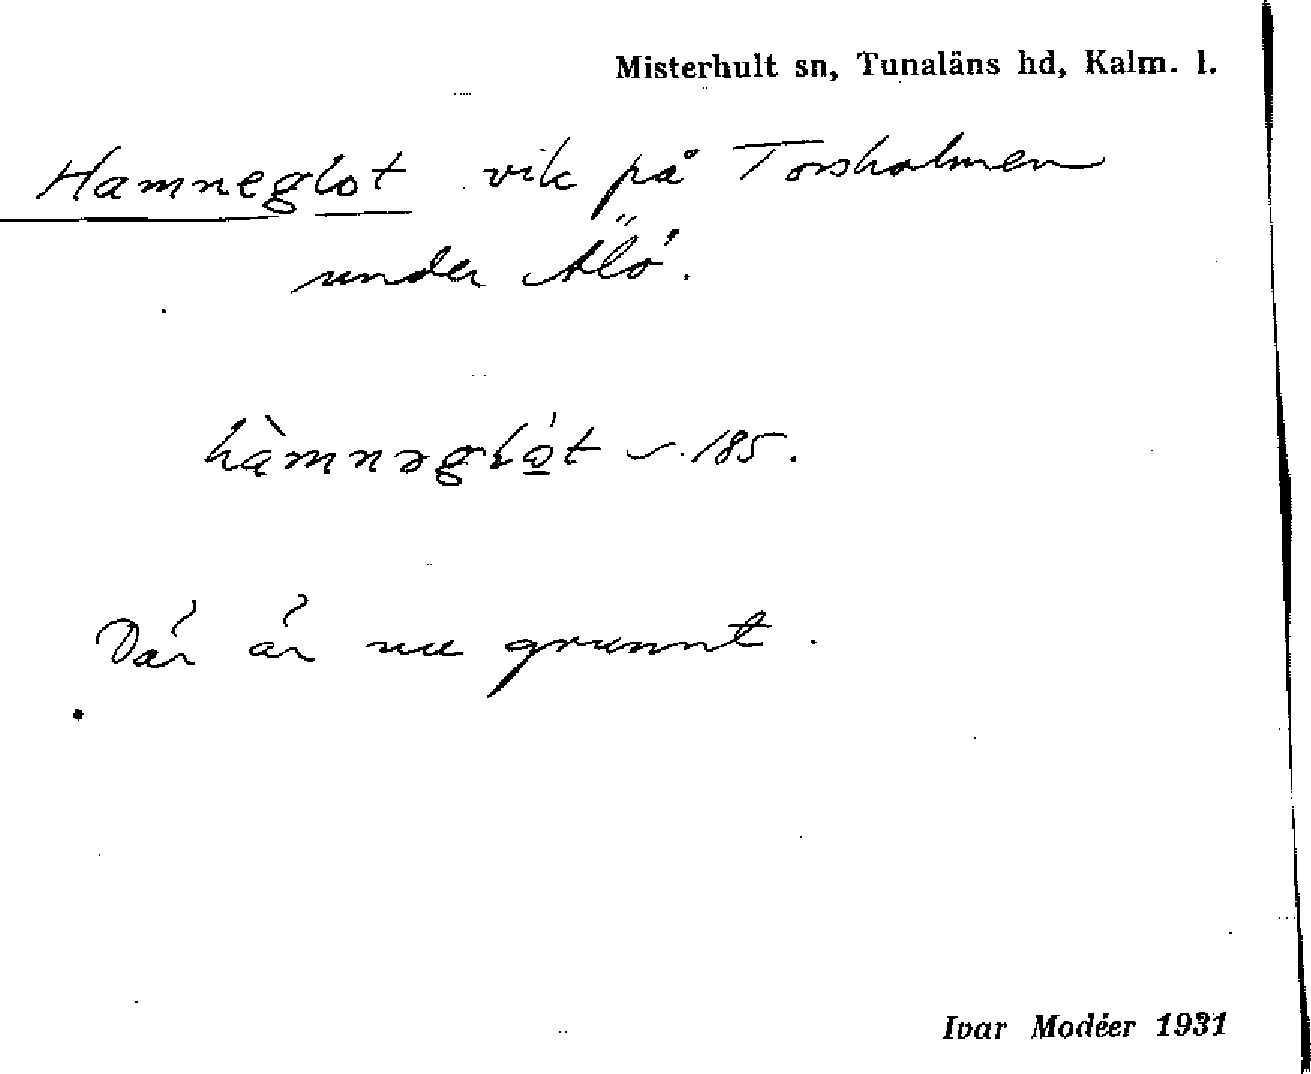 Misterhult sn, Tunaläns hd, Kalm. l.
Hamneglot vik på Torsholmen
under Älö.
hàmnəglót 185.
Där är nu grunnt.
Ivar Modéer 1931